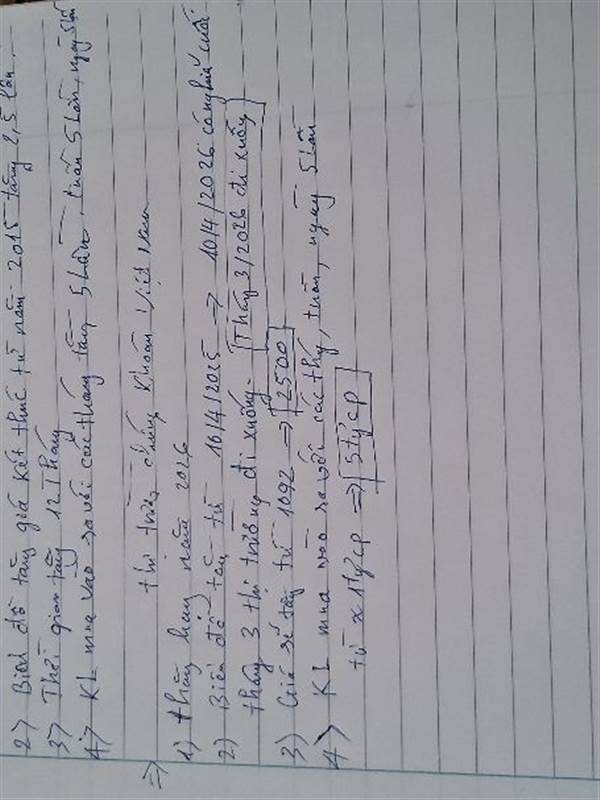 2) Biên độ tăng giá kết thúc từ năm 2015 tăng 2,5 lần.
3) Thời gian tăng 12 Tháng
4) KL mua vào so với các tháng tăng 5 lần, tuần 5 lần, ngày 5 lần
=> thị trường chứng khoán Việt Nam
1) tháng hàng năm 2026
2) Biên độ tăng từ 10/4/2025 => 10/4/2026 cuối
tháng 3 thị trường đi xuống. [Tháng 3/2026 đi xuống]
3) Giá sẽ tăng từ 1092 => [2500]
4) KL mua vào so với các thg, tuần, ngày 5 lần
từ x 1 tỷ cp => [5 tỷ cp]